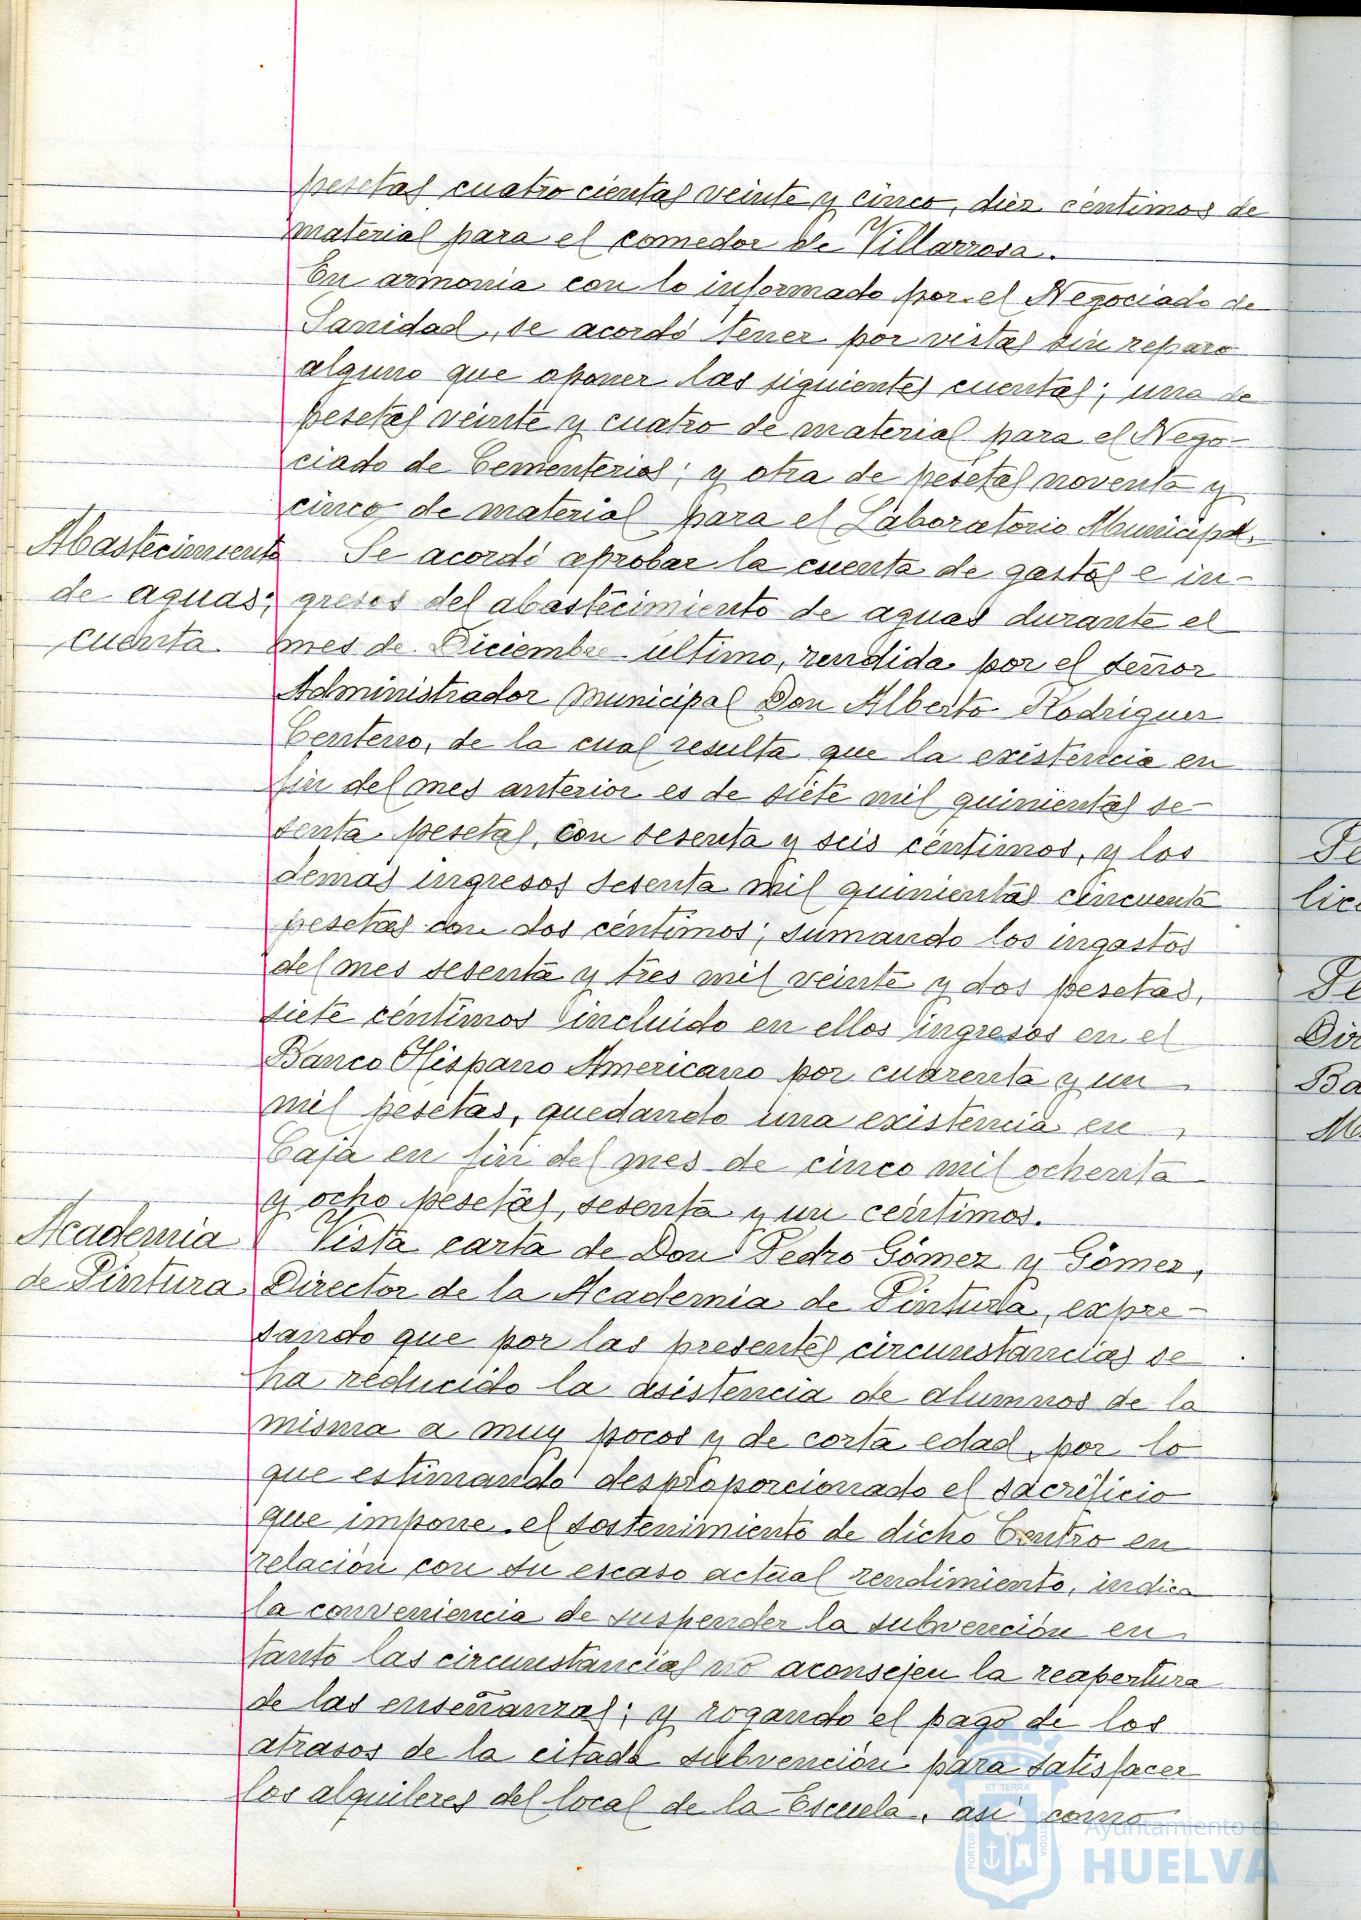 pesetas cuatrocientas veinte y cinco, diez céntimos de
material para el comedor de Villarrosa.
En armonía con lo informado por el Negociado de
Sanidad, se acordó tener por vistas sin reparo
alguno que oponer las siguientes cuentas; una de
pesetas veinte y cuatro de material para el Nego-
ciado de Cementerios; y otra de pesetas noventa y
cinco de material para el Laboratorio Municipal.
Abastecimiento
de aguas;
cuenta.
Se acordó aprobar la cuenta de gastos e in-
gresos del abastecimiento de aguas durante el
mes de Diciembre último, rendida por el señor
Administrador municipal Don Alberto Rodríguez
Centeno, de la cual resulta que la existencia en
fin del mes anterior es de siete mil quinientas se-
senta pesetas, con sesenta y seis céntimos, y los
demás ingresos sesenta mil quinientas cincuenta
pesetas con dos céntimos; sumando los ingastos
del mes sesenta y tres mil veinte y dos pesetas,
siete céntimos incluido en ellos ingresos en el
Banco Hispano Americano por cuarenta y un
mil pesetas, quedando una existencia en
Caja en fin del mes de cinco mil ochenta
y ocho pesetas, sesenta y un céntimos.
Academia
de Pintura
Vista carta de Don Pedro Gómez y Gómez,
Director de la Academia de Pintura, expre-
sando que por las presentes circunstancias se
ha reducido la asistencia de alumnos de la
misma a muy pocos y de corta edad, por lo
que estimando desproporcionado el sacrificio
que impone el sostenimiento de dicho Centro en
relación con su escaso actual rendimiento, indica
la conveniencia de suspender la subvención en
tanto las circunstancias no aconsejen la reapertura
de las enseñanzas; y rogando el pago de los
atrasos de la citada subvención para satisfacer
los alquileres del local de la Escuela, así como
Pe
lice
Pe
Dir
Ba
M
ET TERRAE
Ayuntamiento de
HUELVA